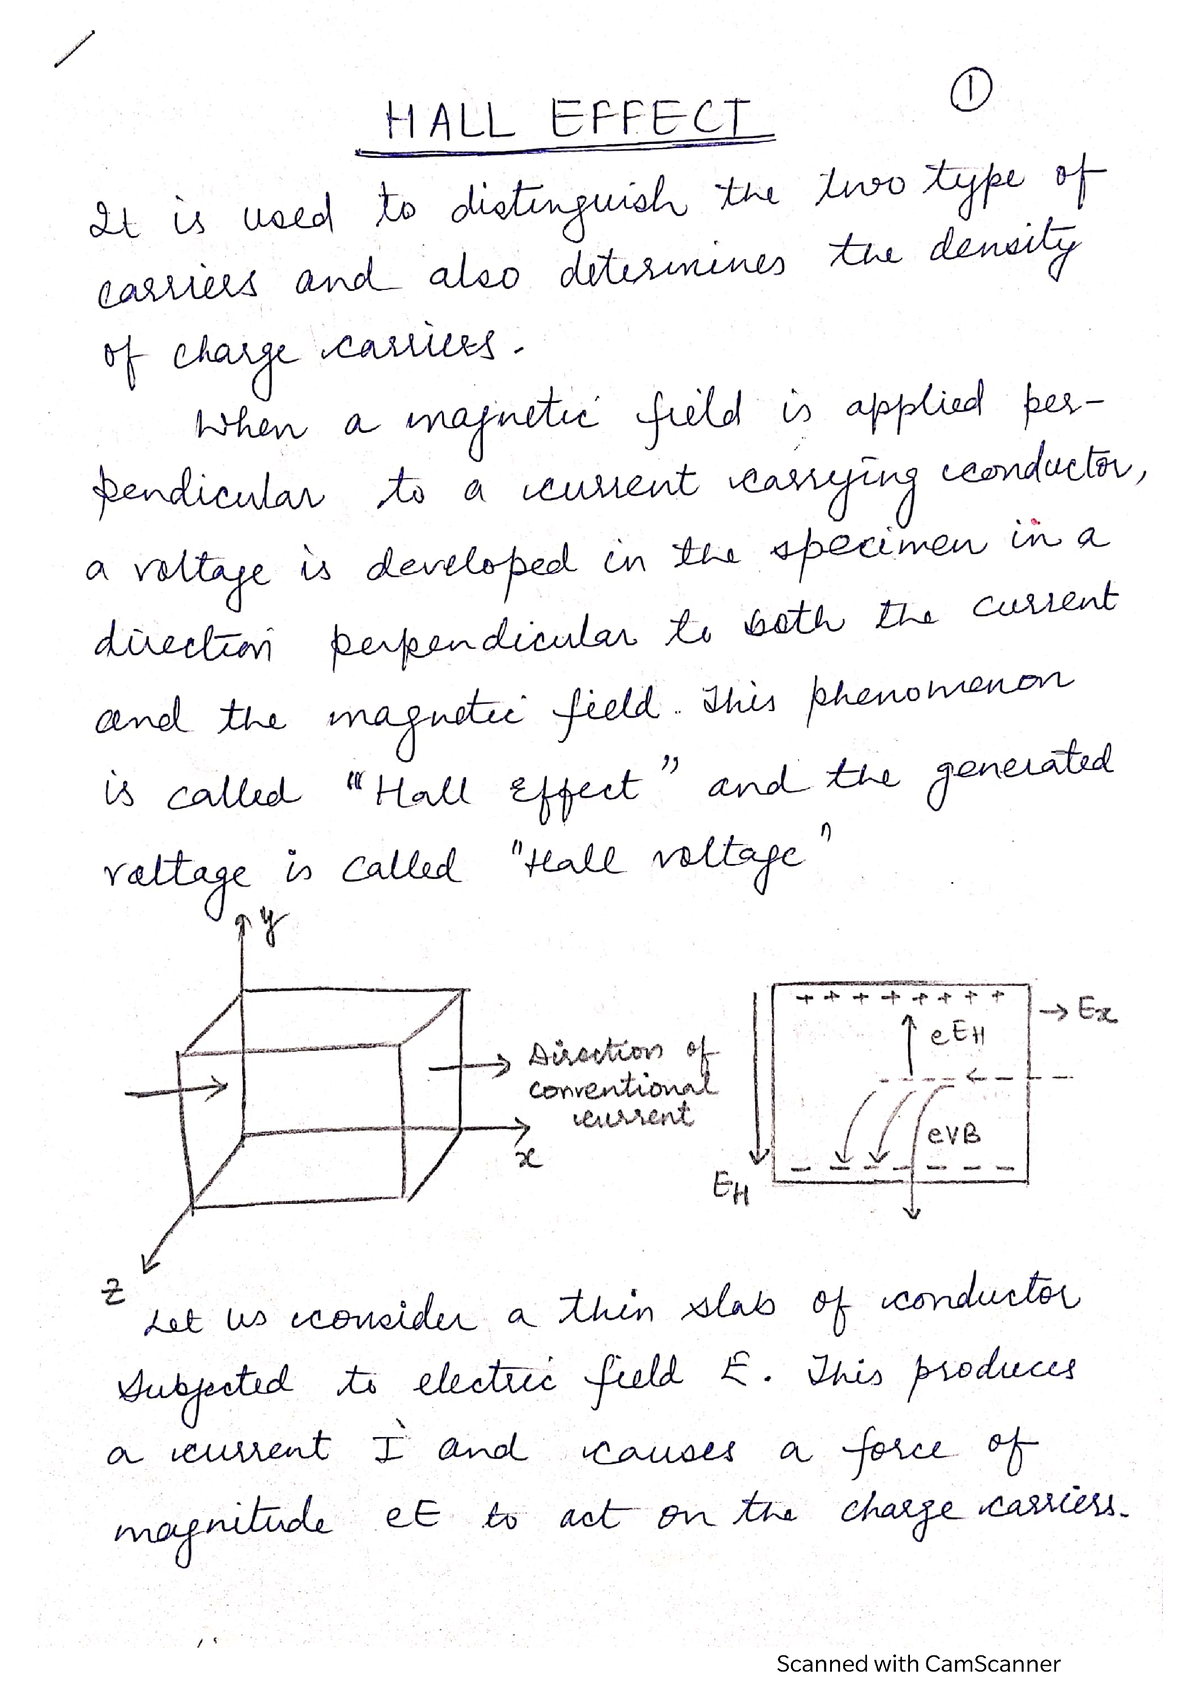 ①
HALL EFFECT
It is used to distinguish the two type of
carriers and also determines the density
of charge carriers.
When a magnetic field is applied per-
pendicular to a current carrying conductor,
a voltage is developed in the specimen in a
direction perpendicular to both the current
and the magnetic field. This phenomenon
is called "Hall Effect" and the generated
voltage is called "Hall voltage"
y
Direction of
conventional
current
x
z
+ + + + + + + +
→ Ex
eEH
eVB
EH
Let us consider a thin slab of conductor
subjected to electric field E. This produces
a current I and causes a force of
magnitude eE to act on the charge carriers.
Scanned with CamScanner